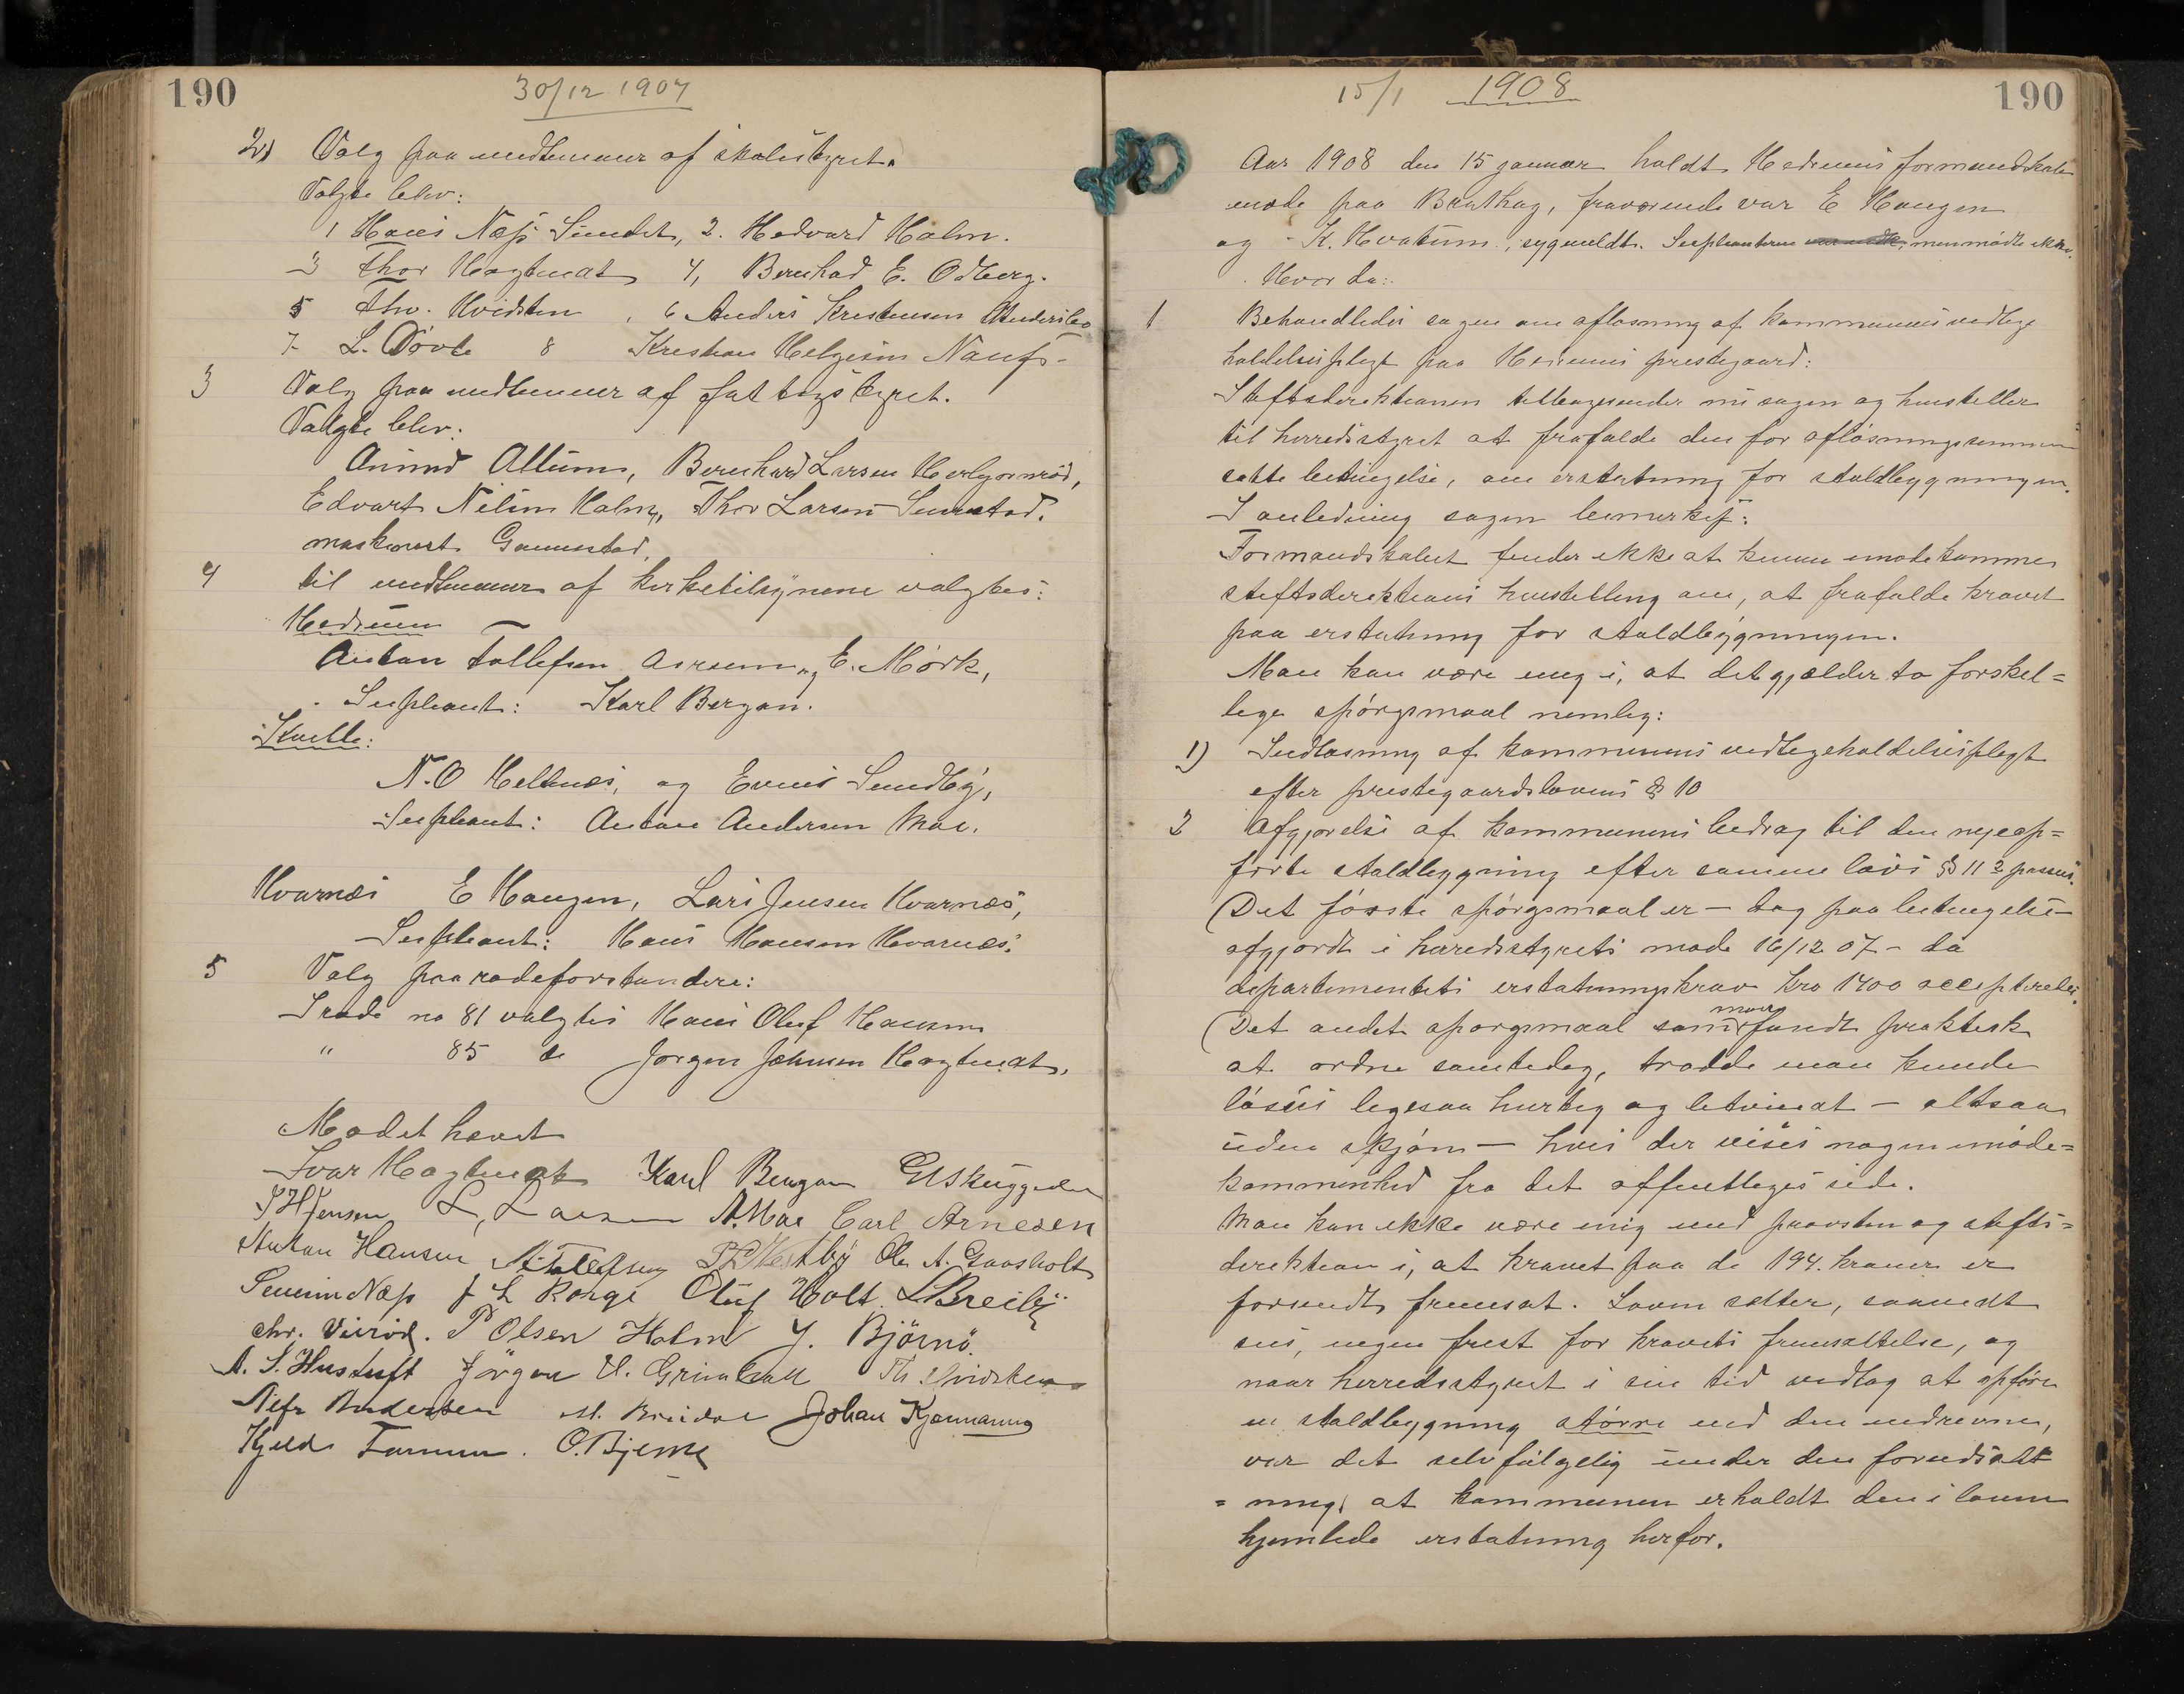 190
30/12 1907
2) Valg paa medlemmer af skolestyret.
Valgte blev:
1 Hans Næss Sundet, 2. Hedvard Holm.
3 Thor Hogtvedt 4, Bernhad E. Odberg.
5 Thv. Hvidsten, 6 Anders Kristensen
7. L. Dovle 8 Kristian Helgesen Nauf-
3 Valg paa medlemmer af fattigstyret.
Valgte blev:
Amund Allum, Bernhard Larsen
Edvart Nilsen Holm, Thor Larsen Sunstad.
maskinist Gaunstad.
4 til medlemmer af kirketilsynene valgtes:
Hedrum
Anton Tollefsen og E. Mörk,
Supleant: Karl Bergan.
Kvelle:
N. O Hellnæs, og Evens Sundby,
Supleant: Anton Andersen Moe.
Hvarnæs E Haugen, Lars Jensen Hvarnæs,
Supleant: Hans Hansen Hvarnæs.
5 Valg paa rodeforstandere:
I rode no 81 valgtes Hans Oluf Hansen
" 85 do Jörgen Johnsen Hogtvedt.
Mødet hævet
Ivar Hogtvedt Karl Bergan
P H Jensen L. Larsen A. Moe Carl Arnesen
Anton Hansen A. Tollefsen Ole A. Gaasholt
Severin Næss J L Korge Oluf Holt L Breily
Chr. Veiröd. P Olsen Holm J. Björnö.
A. S. Hustuft Jörgen U. Th. Hvidsten
Andersen M. Johan Kjærnaung
Kjeld O. Bjerke
15/1 1908
190
Aar 1908 den 15 januar holdt Hedrums formandskab
møde paa Brathag, fraværende var E Haugen
og K. Hvatum, sygmeldt. Supleanterne men mødte ikke.
Hvor da:
1 Behandledes sagen om afløsning af kommunens vedlige
holdelsesplegt paa Hedrums prestegaard:
Steftsderektionen tilbagesender nu sagen og henstiller
til herredsstyret at frafalde den for afløsningssummen
satte betingelse, om erstatning for staldbygningen.
I anledning sagen bemerkes:
Formandskabet finder ikke at kunne imødekomme
steftsderektionens henstilling om, at frafalde kravet
paa erstatning for staldbygningen.
Man kan være enig i, at det gjælder to forskel=
lige spörgsmaal nemlig:
1) Indløsning af kommunens vedligeholdelsesplegt
efter prestegaardslovens § 10
2 Afgjørelse af kommunens bedrag til den nyeop=
førte staldbygning efter samme lovs § 11 2 passus.
Det første spörgsmaal er – dog paa betingelse –
afgjordt i herredsstyrets møde 16/12 07 – da
departementets erstatningskrav kro 1400 accepteredes.
Det andet spørgsmaal som man fandt praktisk
at ordne samtidig, trodde man kunde
löses ligesaa hurtig og letvindt – altsaa
uden skjøn – hvis der vises nogen imøde=
kommenhed fra det offentliges side.
Man kan ikke være enig med provsten og stefts=
derektion i, at kravet paa de 194. kroner er
forsendt fremsat. Loven sætter, saavidt
sees, ingen frist for kravets fremsættelse, og
naar herredsstyret i sin tid vedtog at opføre
en staldbygning större end den nedrevne,
var det selvfölgelig under den forudsætt
= ning, at kommunen erholdt den i loven
hjemlede erstatning herfor.